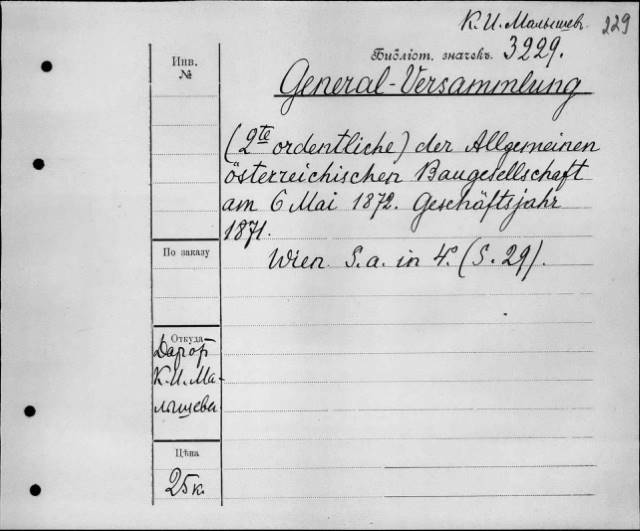 К. И. Малышев. 229
Библіот. значекъ. 3229.
Инв.
№
General-Versammlung
(2te ordentliche) der Allgemeinen
österreichischen Baugesellschaft
am 6 Mai 1872. Geschäftsjahr
1871.
Wien. S. a. in 4°. (S. 29).
По заказу
Откуда
К. И. Ма-
лышева
Цѣна
25 к.